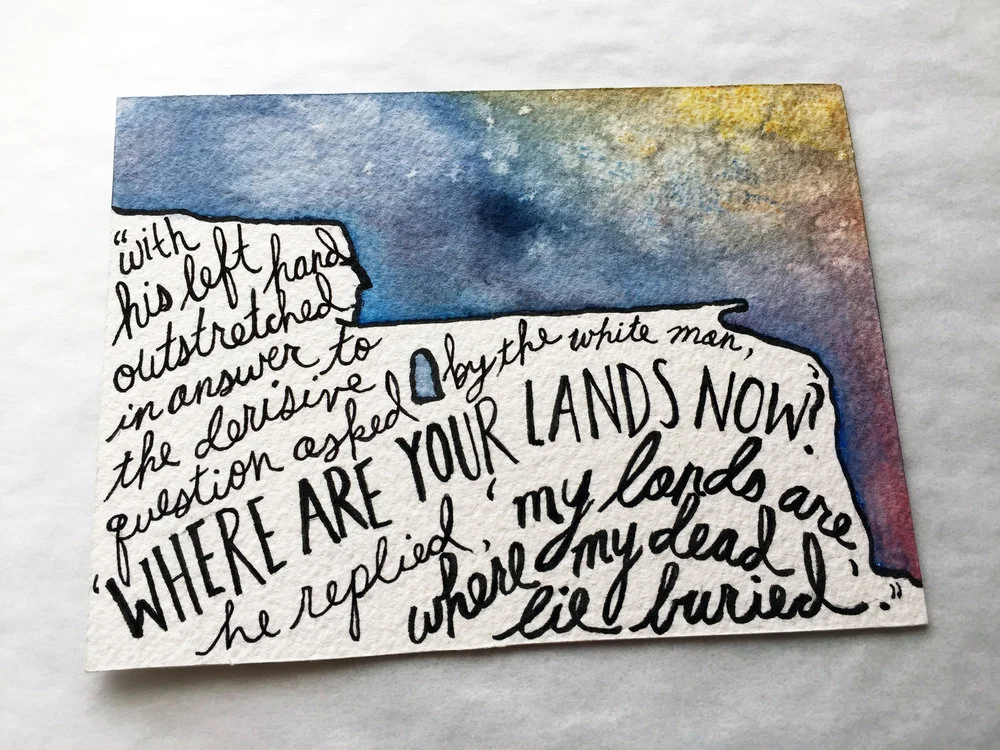 “with
his left hand
outstretched
in answer to
the derisive
question asked by the white man,
‘WHERE ARE YOUR LANDS NOW?’
he replied, ‘my lands are
where my dead
lie buried’.”